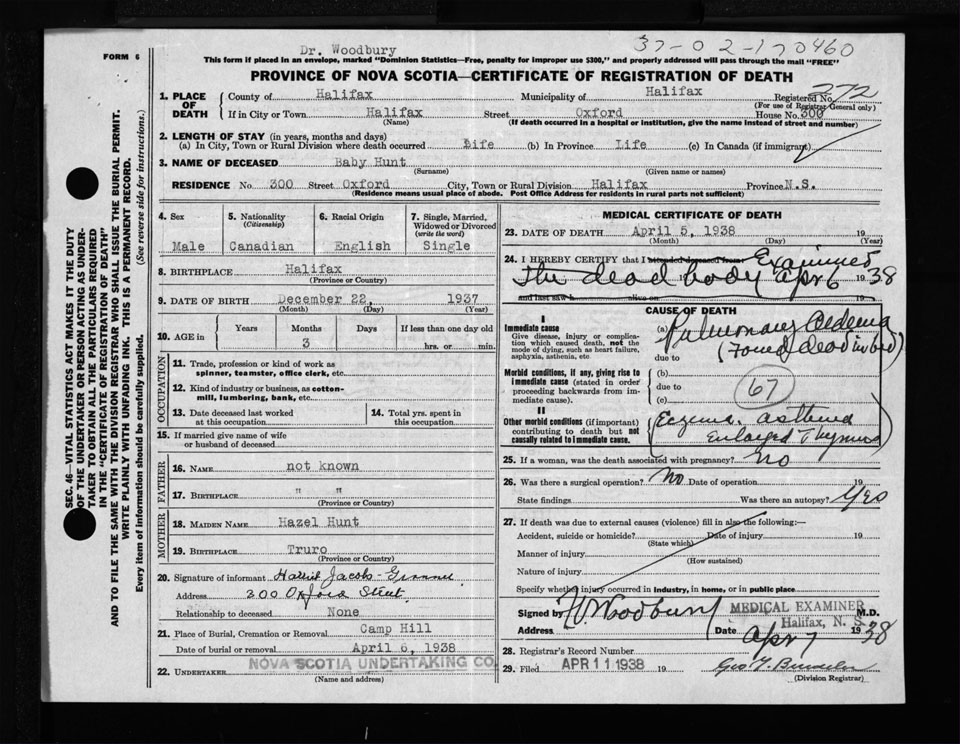 37-02-170460
Dr. Woodbury
FORM 6
This form if placed in an envelope, marked "Dominion Statistics—Free, penalty for improper use $300," and properly addressed will pass through the mail "FREE"
PROVINCE OF NOVA SCOTIA—CERTIFICATE OF REGISTRATION OF DEATH
SEC. 46—VITAL STATISTICS ACT MAKES IT THE DUTY
OF THE UNDERTAKER OR PERSON ACTING AS UNDER-
TAKER TO OBTAIN ALL THE PARTICULARS REQUIRED
IN THE "CERTIFICATE OF REGISTRATION OF DEATH"
AND TO FILE THE SAME WITH THE DIVISION REGISTRAR WHO SHALL ISSUE THE BURIAL PERMIT.
WRITE PLAINLY WITH UNFADING INK. THIS IS A PERMANENT RECORD.
Every item of information should be carefully supplied. (See reverse side for instructions.)
1. PLACE OF DEATH
County of Halifax Municipality of Halifax Registered No. 272
(For use of Registrar General only)
If in City or Town Halifax Street Oxford House No. 300
(Name) (If death occurred in a hospital or institution, give the name instead of street and number)
2. LENGTH OF STAY (in years, months and days)
(a) In City, Town or Rural Division where death occurred Life (b) In Province Life (c) In Canada (if immigrant)
3. NAME OF DECEASED Baby Hunt
(Surname) (Given name or names)
RESIDENCE No. 300 Street Oxford City, Town or Rural Division Halifax Province N.S.
(Residence means usual place of abode. Post Office Address for residents in rural parts not sufficient)
4. Sex 5. Nationality (Citizenship) 6. Racial Origin 7. Single, Married, Widowed or Divorced (write the word)
Male Canadian English Single
8. BIRTHPLACE Halifax
(Province or Country)
9. DATE OF BIRTH December 22, 1937
(Month) (Day) (Year)
10. AGE in Years Months Days If less than one day old
3 hrs. or min.
OCCUPATION
11. Trade, profession or kind of work as
spinner, teamster, office clerk, etc.
12. Kind of industry or business, as cotton-
mill, lumbering, bank, etc.
13. Date deceased last worked at this occupation 14. Total yrs. spent in this occupation
15. If married give name of wife
or husband of deceased
FATHER
16. NAME not known
17. BIRTHPLACE " "
(Province or Country)
MOTHER
18. MAIDEN NAME Hazel Hunt
19. BIRTHPLACE Truro
(Province or Country)
20. Signature of informant Jacobs
Address 300 Oxford Street
Relationship to deceased None
21. Place of Burial, Cremation or Removal Camp Hill
Date of burial or removal April 6, 1938
22. UNDERTAKER NOVA SCOTIA UNDERTAKING CO.
(Name and address)
MEDICAL CERTIFICATE OF DEATH
23. DATE OF DEATH April 5, 1938 19
(Month) (Day) (Year)
24. I HEREBY CERTIFY that I attended deceased from Examined
the dead body Apr 6 19 38
and last saw h alive on 19
CAUSE OF DEATH
I
Immediate cause
Give disease, injury or complica-
tion which caused death, not the
mode of dying, such as heart failure,
asphyxia, asthenia, etc
(a) Pulmonary Oedema
(Found dead in bed)
due to
Morbid conditions, if any, giving rise to
immediate cause (stated in order
proceeding backwards from im-
mediate cause).
(b)
due to
(c)
67
II
Other morbid conditions (if important)
contributing to death but not
causally related to immediate cause.
Eczema. Asthma
Enlarged Thymus
25. If a woman, was the death associated with pregnancy? No
26. Was there a surgical operation? No Date of operation 19
State findings Was there an autopsy? Yes
27. If death was due to external causes (violence) fill in also the following:—
Accident, suicide or homicide? Date of injury 19
(State which)
Manner of injury
(How sustained)
Nature of injury
Specify whether injury occurred in industry, in home, or in public place
Signed by Woodbury MEDICAL EXAMINER M.D.
Halifax, N. S.
Address Date Apr 7 19 38
28. Registrar's Record Number
29. Filed APR 11 1938 19
(Division Registrar)